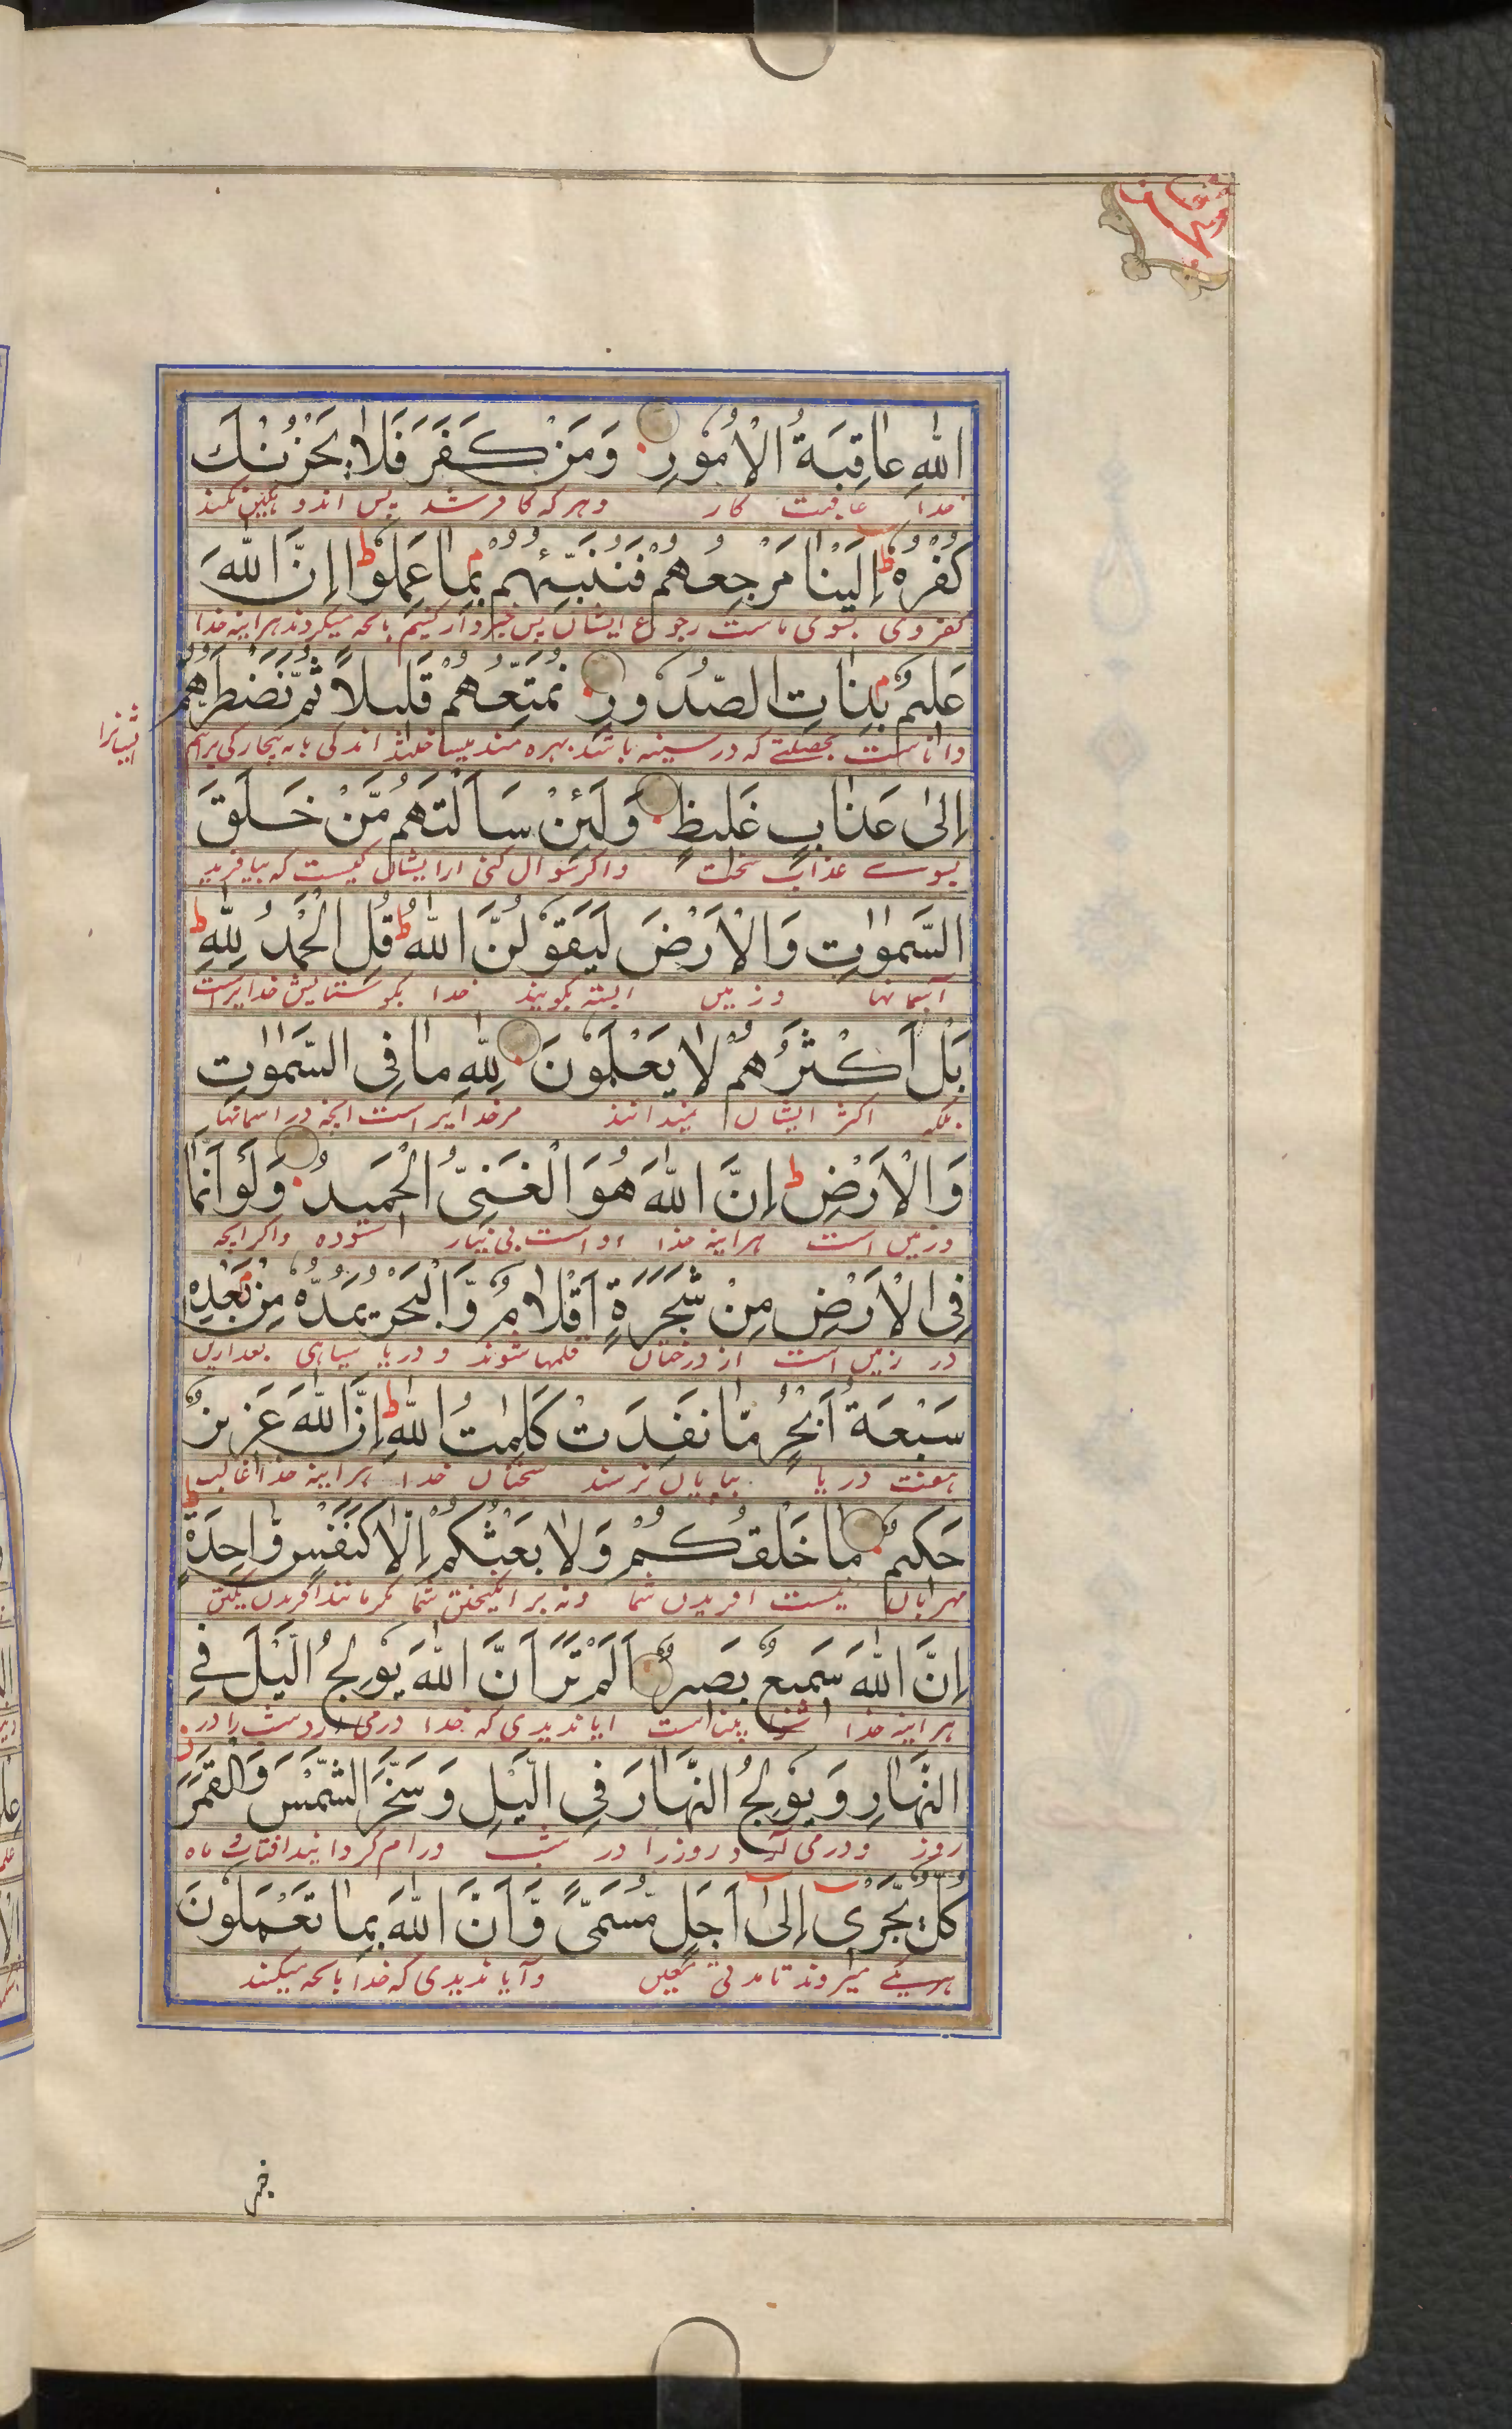 اللّٰهِ عَاقِبَةُ الْاُمُوْرِ وَمَنْ كَفَرَ فَلَا يَحْزُنْكَ
خدا عاقبت کار وهرکه کافر شد پس اندوهگین نکند
كُفْرُهٗ ط اِلَيْنَا مَرْجِعُهُمْ فَنُنَبِّئُهُمْ بِمَا عَمِلُوْا ط اِنَّ اللّٰهَ
کفر وی بسوی ماست رجوع ایشان پس خبردار کنیم بانچه میکردند هراینه خدا
عَلِيْمٌ بِذَاتِ الصُّدُوْرِ نُمَتِّعُهُمْ قَلِيْلًا ثُمَّ نَضْطَرُّهُمْ
داناست بخصلتے که در سینه باشد بهره مند میساختند اندکی باز بیچارگی بریم
ایشانرا
اِلٰى عَذَابٍ غَلِيْظٍ وَلَئِنْ سَاَلْتَهُمْ مَّنْ خَلَقَ
بسوے عذاب سخت واکر سوال کنی ازایشان کیست که بیافرید
السَّمٰوٰتِ وَالْاَرْضَ لَيَقُوْلُنَّ اللّٰهُ ط قُلِ الْحَمْدُ لِلّٰهِ ط
آسمانها وزمین البته بکویند خدا بکو ستایش خدایراست
بَلْ اَكْثَرُهُمْ لَا يَعْلَمُوْنَ لِلّٰهِ مَا فِى السَّمٰوٰتِ
بلکه اکثر ایشان نمیدانند مرخدایراست انچه در اسمانها
وَالْاَرْضِ ط اِنَّ اللّٰهَ هُوَ الْغَنِىُّ الْحَمِيْدُ وَلَوْ اَنَّمَا
وزمین است هراینه خدا اواست بی نیاز ستوده واکر انچه
فِى الْاَرْضِ مِنْ شَجَرَةٍ اَقْلَامٌ وَّالْبَحْرُ يَمُدُّهٗ مِنْ بَعْدِهٖ
در زمین است از درختان قلمها شوند و دریا سیاهی بعدازین
سَبْعَةُ اَبْحُرٍ مَّا نَفِدَتْ كَلِمٰتُ اللّٰهِ ط اِنَّ اللّٰهَ عَزِيْزٌ
هفت دریا بپایان نرسند سخنان خدا هراینه خدا غالب
حَكِيْمٌ مَا خَلْقُكُمْ وَلَا بَعْثُكُمْ اِلَّا كَنَفْسٍ وَّاحِدَةٍ ط
مهربان نیست افریدن شما ونه برانکیختن شما مکر مانند افریدن یکتن
اِنَّ اللّٰهَ سَمِيْعٌ بَصِيْرٌ اَلَمْ تَرَ اَنَّ اللّٰهَ يُوْلِجُ الَّيْلَ فِى
هراینه خدا شنوا بیناست ایا ندیدی که خدا درمی ارد شب را در
النَّهَارِ وَيُوْلِجُ النَّهَارَ فِى الَّيْلِ وَسَخَّرَ الشَّمْسَ وَالْقَمَرَ ز
روز ودرمی آرد روز را در شب ورام کردانید افتاب و ماه
كُلٌّ يَّجْرِىْ اِلٰى اَجَلٍ مُّسَمًّى وَّاَنَّ اللّٰهَ بِمَا تَعْمَلُوْنَ
هریکے میروند تا مدتی معین وآیا ندیدی که خدا بانچه میکنند